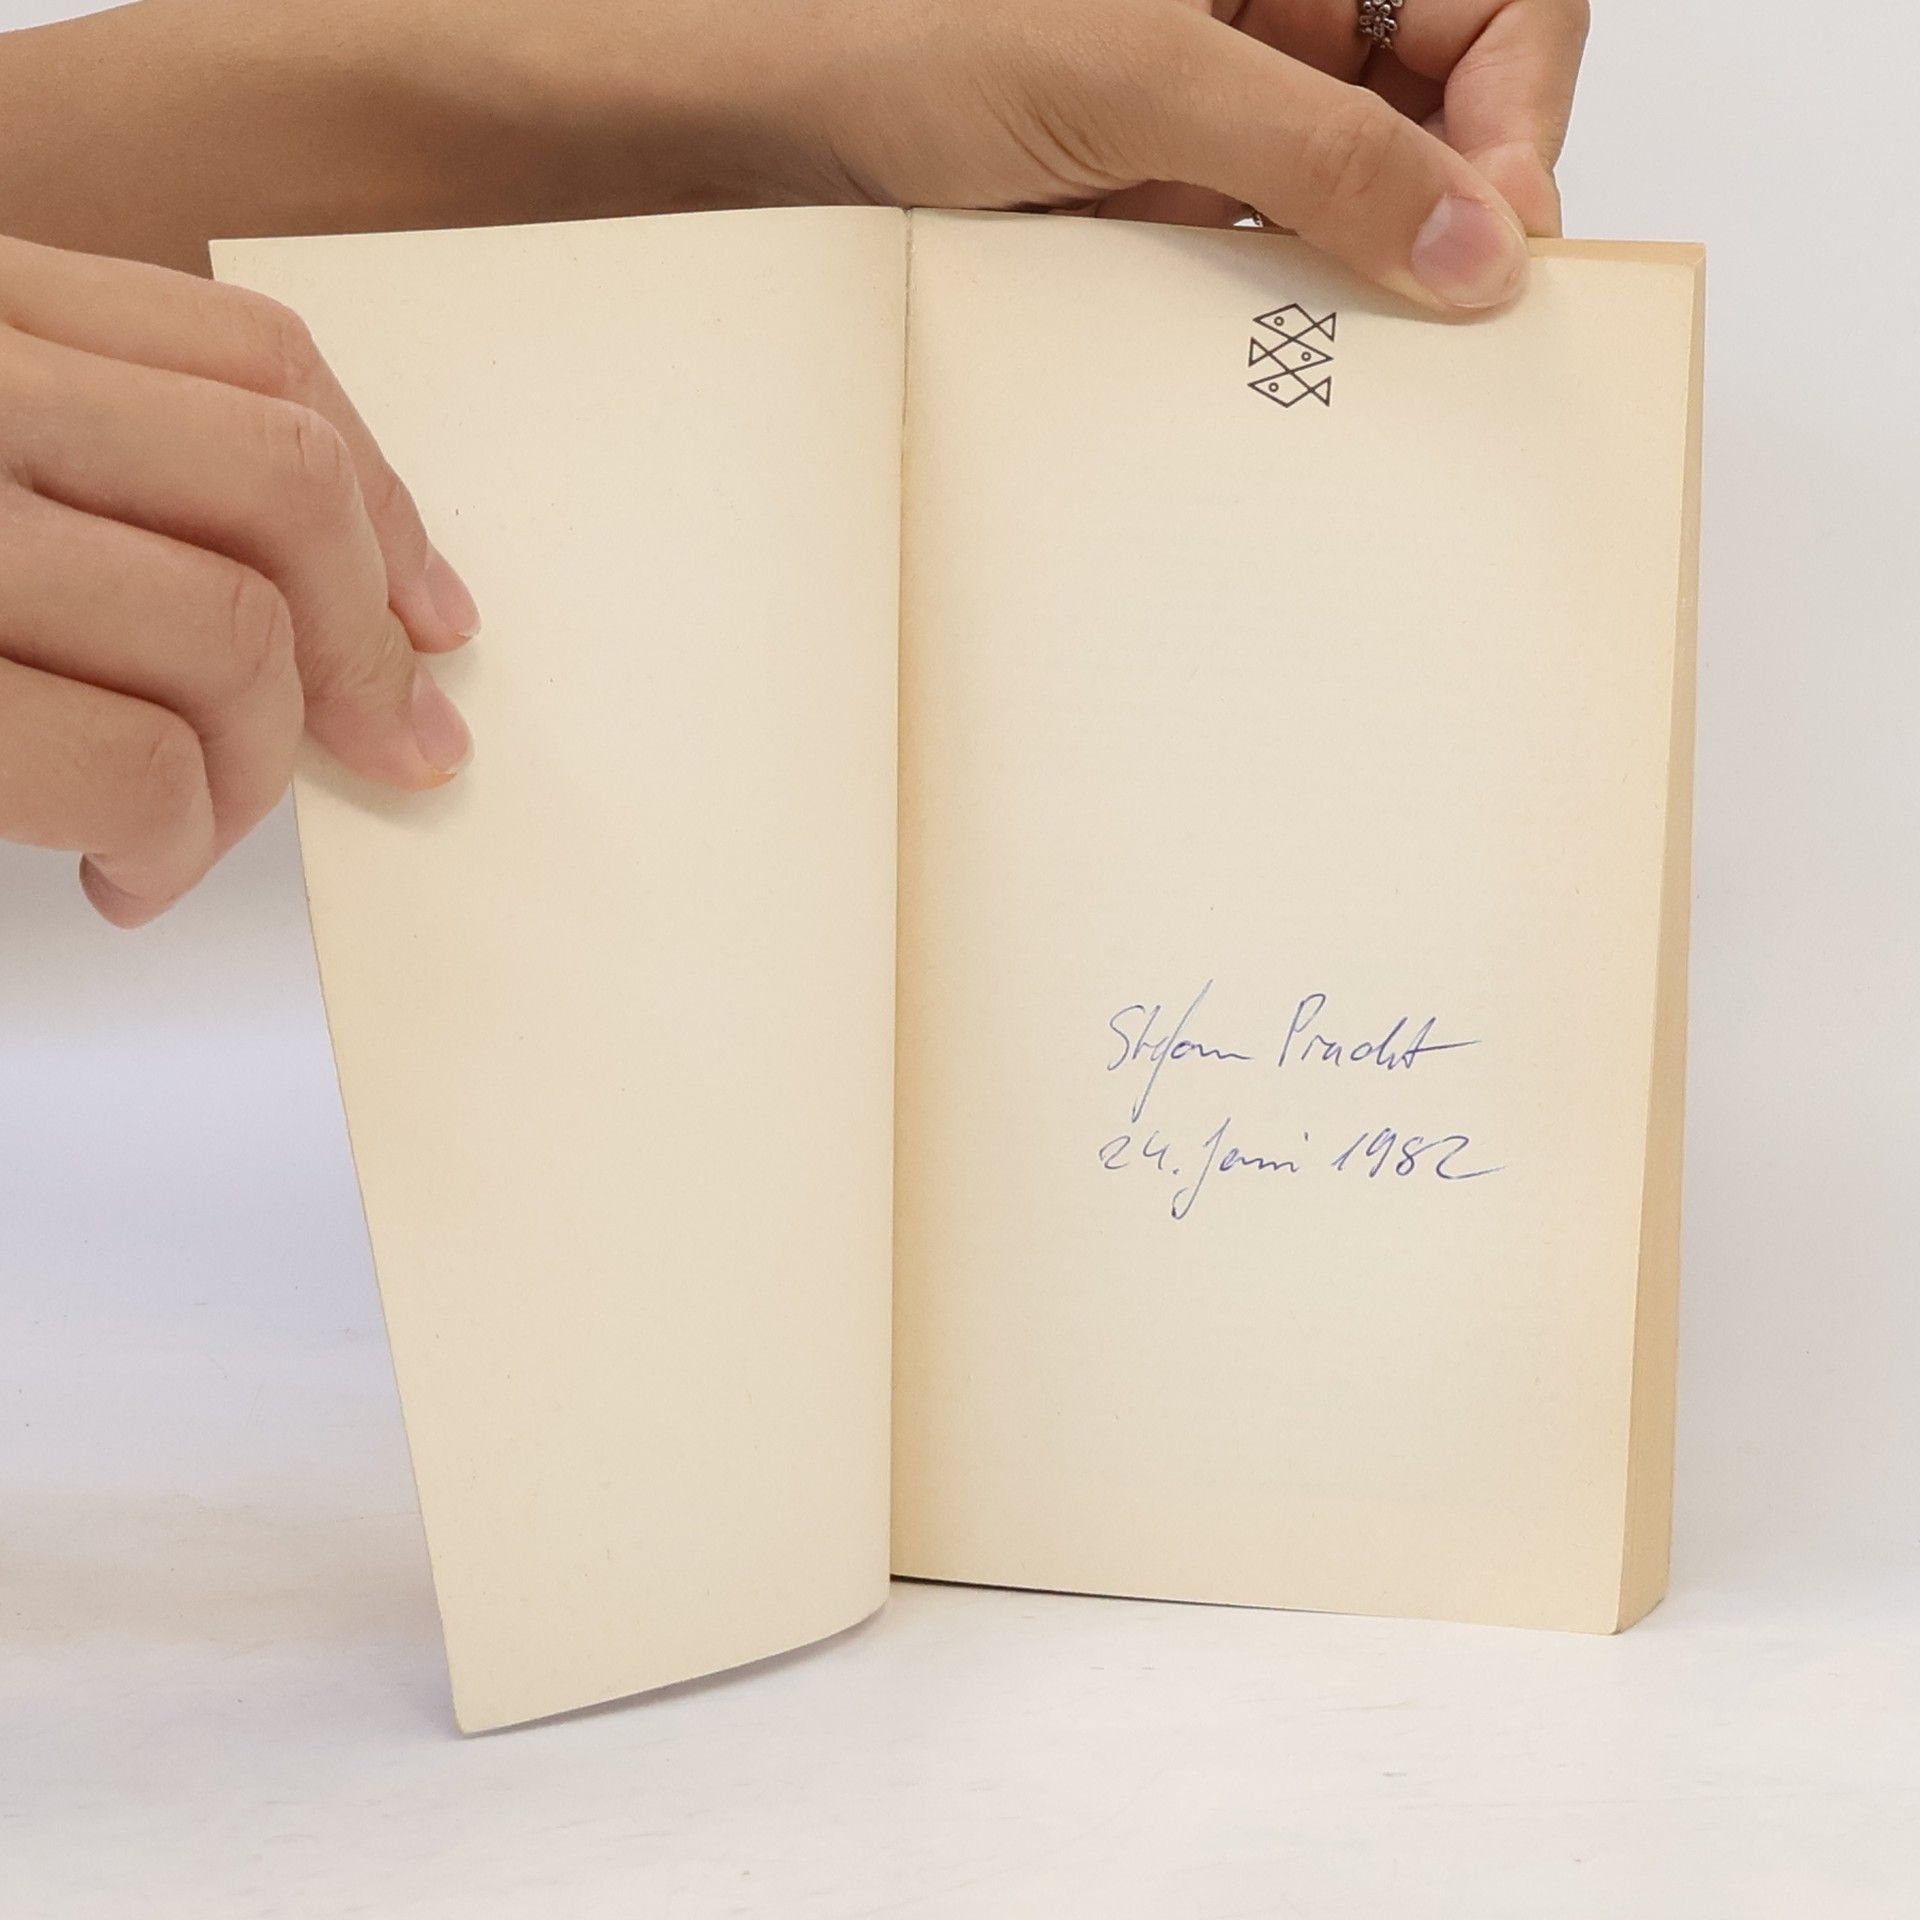 Stefan Pracht
24. Juni 1982